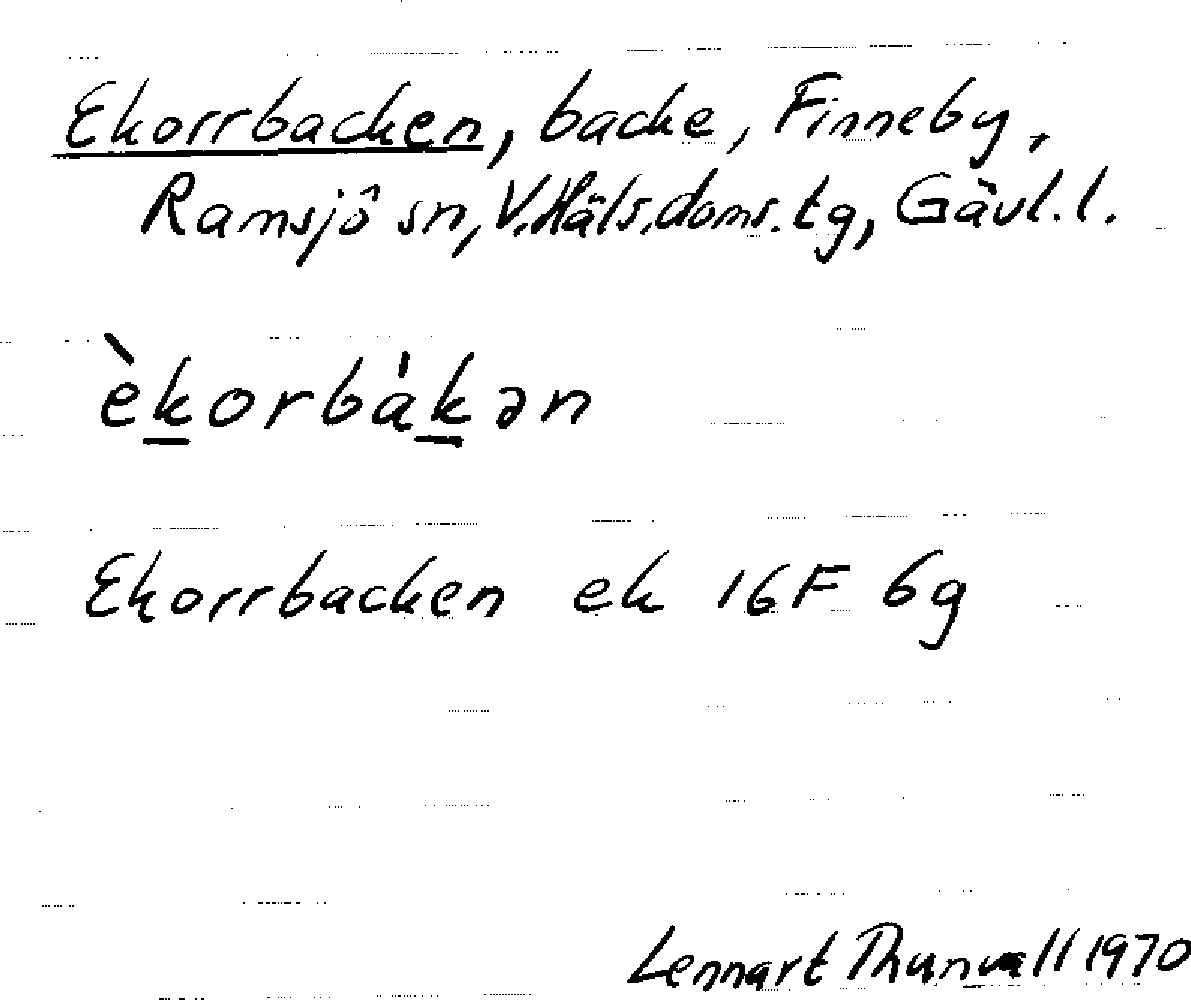 Ekorrbacken, backe, Finneby,
Ramsjö sn, V.Häls.doms.tg, Gävl.l.
èkorbákən
Ekorrbacken ek 16F 6g
Lennart Thunvall 1970